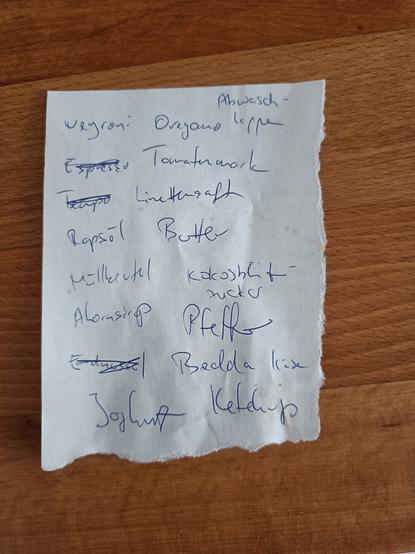 Abwasch-
Negroni Oregano lappen
Espresso Tomatenmark
Tempo Limettensaft
Rapsöl Butter
Müllbeutel Kokosblüt-
zucker
Ahornsirup Pfeffer
Bedda Käse
Joghurt Ketchup